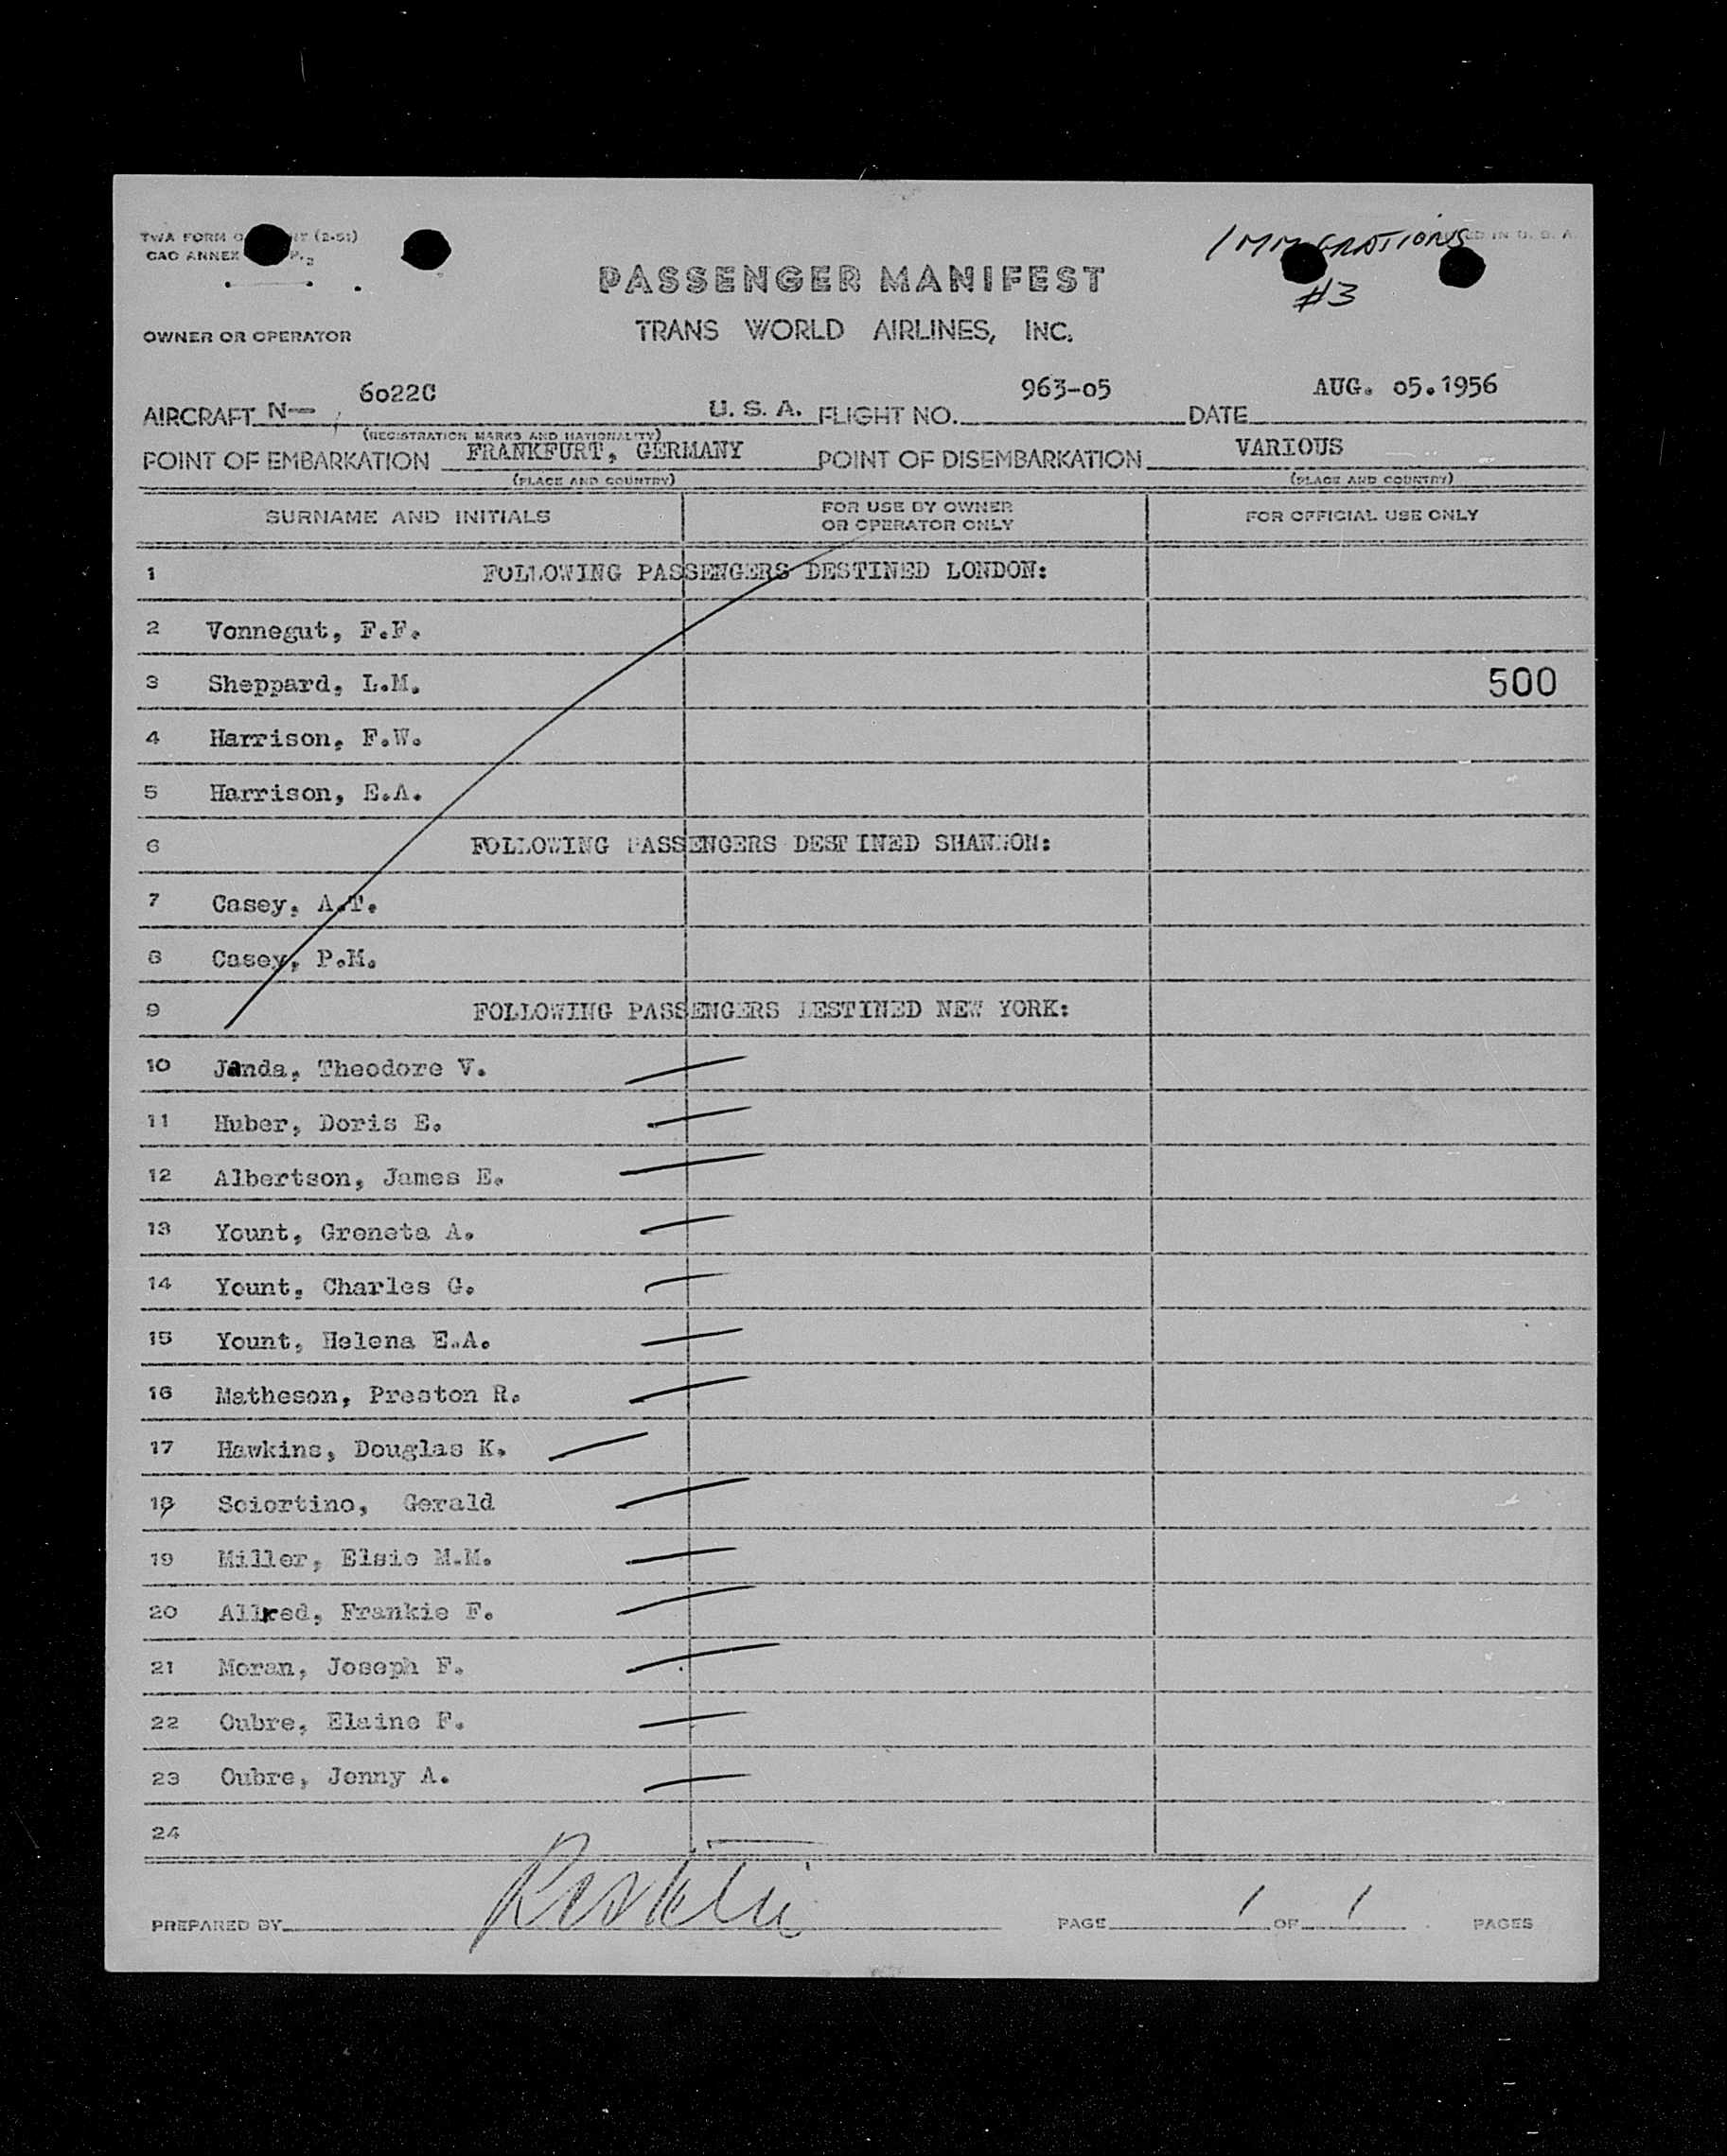 TWA FORM (2-51)
CAO ANNEX
IMMIGRATIONS IN U. S. A.
#3
PASSENGER MANIFEST
OWNER OR OPERATOR TRANS WORLD AIRLINES, INC.
AIRCRAFT N— 6022C U. S. A. FLIGHT NO. 963-05 DATE AUG. 05.1956
(REGISTRATION MARKS AND NATIONALITY)
POINT OF EMBARKATION FRANKFURT, GERMANY POINT OF DISEMBARKATION VARIOUS
(PLACE AND COUNTRY) (PLACE AND COUNTRY)
SURNAME AND INITIALS FOR USE BY OWNER OR OPERATOR ONLY FOR OFFICIAL USE ONLY
1 FOLLOWING PASSENGERS DESTINED LONDON:
2 Vonnegut, F.F.
3 Sheppard, L.M. 500
4 Harrison, F.W.
5 Harrison, E.A.
6 FOLLOWING PASSENGERS DESTINED SHANNON:
7 Casey, A.T.
8 Casey, P.M.
9 FOLLOWING PASSENGERS DESTINED NEW YORK:
10 Janda, Theodore V.
11 Huber, Doris E.
12 Albertson, James E.
13 Yount, Groneta A.
14 Yount, Charles G.
15 Yount, Helena E.A.
16 Matheson, Preston R.
17 Hawkins, Douglas K.
18 Sciortino, Gerald
19 Miller, Elsie M.M.
20 Allred, Frankie F.
21 Moran, Joseph F.
22 Oubre, Elaine F.
23 Oubre, Jenny A.
24
PREPARED BY PAGE 1 OF 1 PAGES